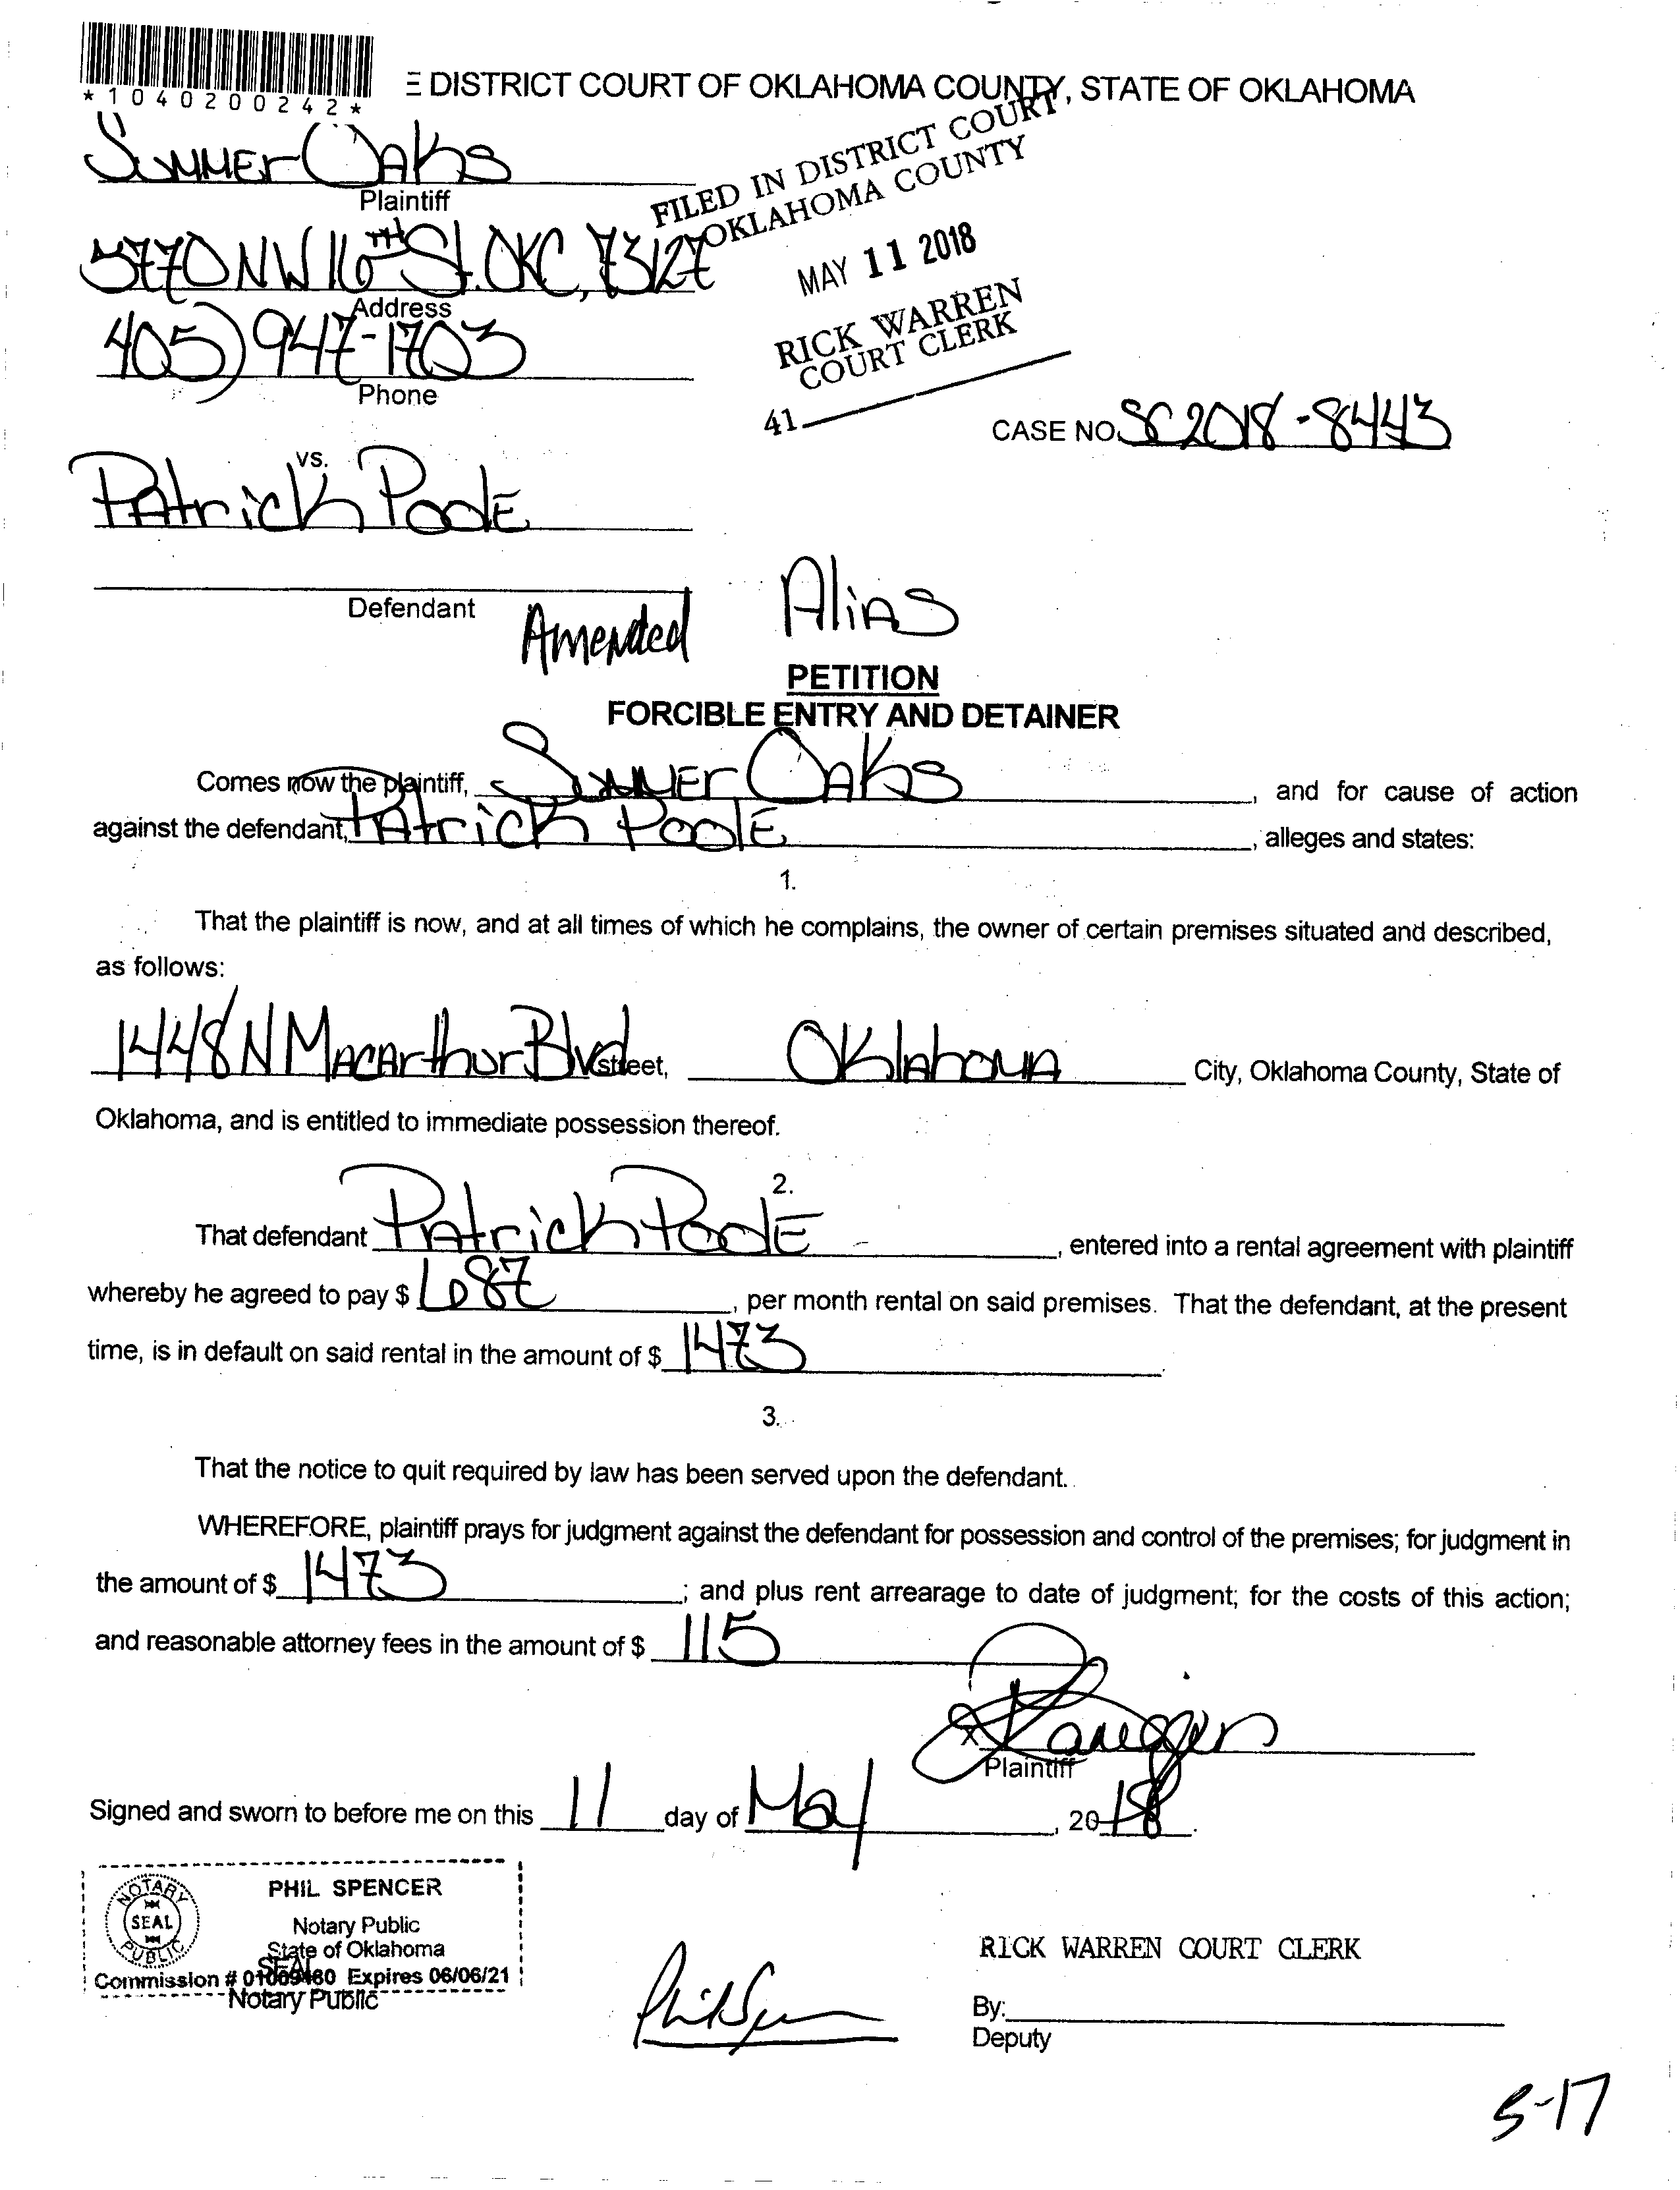 *1040200242*
E DISTRICT COURT OF OKLAHOMA COUNTY, STATE OF OKLAHOMA
Summer Oaks
Plaintiff
FILED IN DISTRICT COURT
OKLAHOMA COUNTY
5770 NW 16TH St. OKC, 73127
Address
MAY 11 2018
405) 947-1703
Phone
RICK WARREN
COURT CLERK
41
CASE NO. SC2018-8443
vs.
Patrick Poole
Defendant
Amended
Alias
PETITION
FORCIBLE ENTRY AND DETAINER
Comes now the plaintiff, Summer Oaks, and for cause of action
against the defendant, Patrick Poole, alleges and states:
1.
That the plaintiff is now, and at all times of which he complains, the owner of certain premises situated and described,
as follows:
1448 N MacArthur Blvd street, Oklahoma City, Oklahoma County, State of
Oklahoma, and is entitled to immediate possession thereof.
2.
That defendant Patrick Poole, entered into a rental agreement with plaintiff
whereby he agreed to pay $ 687, per month rental on said premises. That the defendant, at the present
time, is in default on said rental in the amount of $ 1473.
3.
That the notice to quit required by law has been served upon the defendant.
WHEREFORE, plaintiff prays for judgment against the defendant for possession and control of the premises; for judgment in
the amount of $ 1473; and plus rent arrearage to date of judgment; for the costs of this action;
and reasonable attorney fees in the amount of $ 115
X
Plaintiff
Signed and sworn to before me on this 11 day of May, 2018.
NOTARY PUBLIC
SEAL
PHIL SPENCER
Notary Public
State of Oklahoma
Commission # 01009460 Expires 06/06/21
SEAL
Notary Public
Phil Spencer
RICK WARREN COURT CLERK
By:
Deputy
5-17